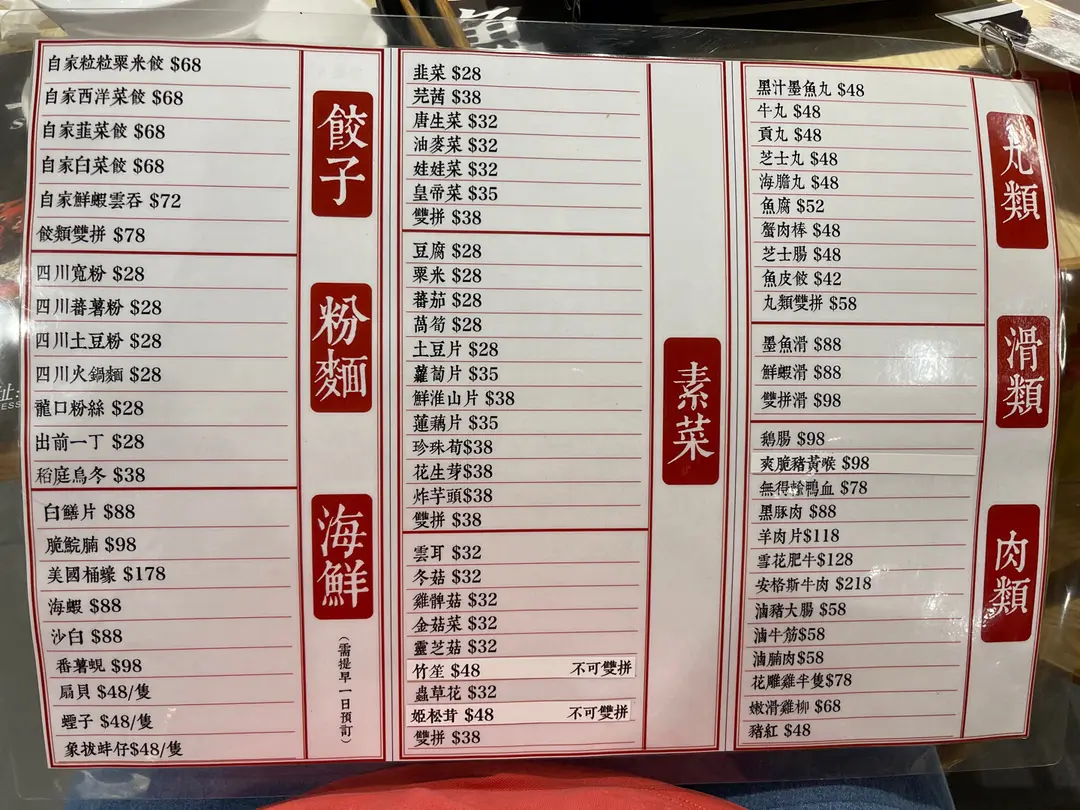 餃子
自家粒粒粟米餃 $68
自家西洋菜餃 $68
自家韮菜餃 $68
自家白菜餃 $68
自家鮮蝦雲吞 $72
餃類雙拼 $78
粉麵
四川寬粉 $28
四川蕃薯粉 $28
四川土豆粉 $28
四川火鍋麵 $28
龍口粉絲 $28
出前一丁 $28
稻庭烏冬 $38
海鮮
(需提早一日預訂)
白鱔片 $88
脆鯇腩 $98
美國桶蠔 $178
海蝦 $88
沙白 $88
番薯蜆 $98
扇貝 $48/隻
蟶子 $48/隻
象拔蚌仔$48/隻
素菜
韭菜 $28
芫茜 $38
唐生菜 $32
油麥菜 $32
娃娃菜 $32
皇帝菜 $35
雙拼 $38
豆腐 $28
粟米 $28
蕃茄 $28
萵筍 $28
土豆片 $28
蘿蔔片 $35
鮮淮山片 $38
蓮藕片 $35
珍珠荀$38
花生芽$38
炸芋頭$38
雙拼 $38
雲耳 $32
冬菇 $32
雞髀菇 $32
金菇菜 $32
靈芝菇 $32
竹笙 $48 不可雙拼
蟲草花 $32
姬松茸 $48 不可雙拼
雙拼 $38
丸類
黑汁墨魚丸 $48
牛丸 $48
貢丸 $48
芝士丸 $48
海膽丸 $48
魚腐 $52
蟹肉棒 $48
芝士腸 $48
魚皮餃 $42
丸類雙拼 $58
滑類
墨魚滑 $88
鮮蝦滑 $88
雙拼滑 $98
肉類
鵝腸 $98
爽脆豬黃喉 $98
無得輸鴨血 $78
黑豚肉 $88
羊肉片$118
雪花肥牛$128
安格斯牛肉 $218
滷豬大腸 $58
滷牛筋$58
滷腩肉$58
花雕雞半隻$78
嫩滑雞柳 $68
豬紅 $48